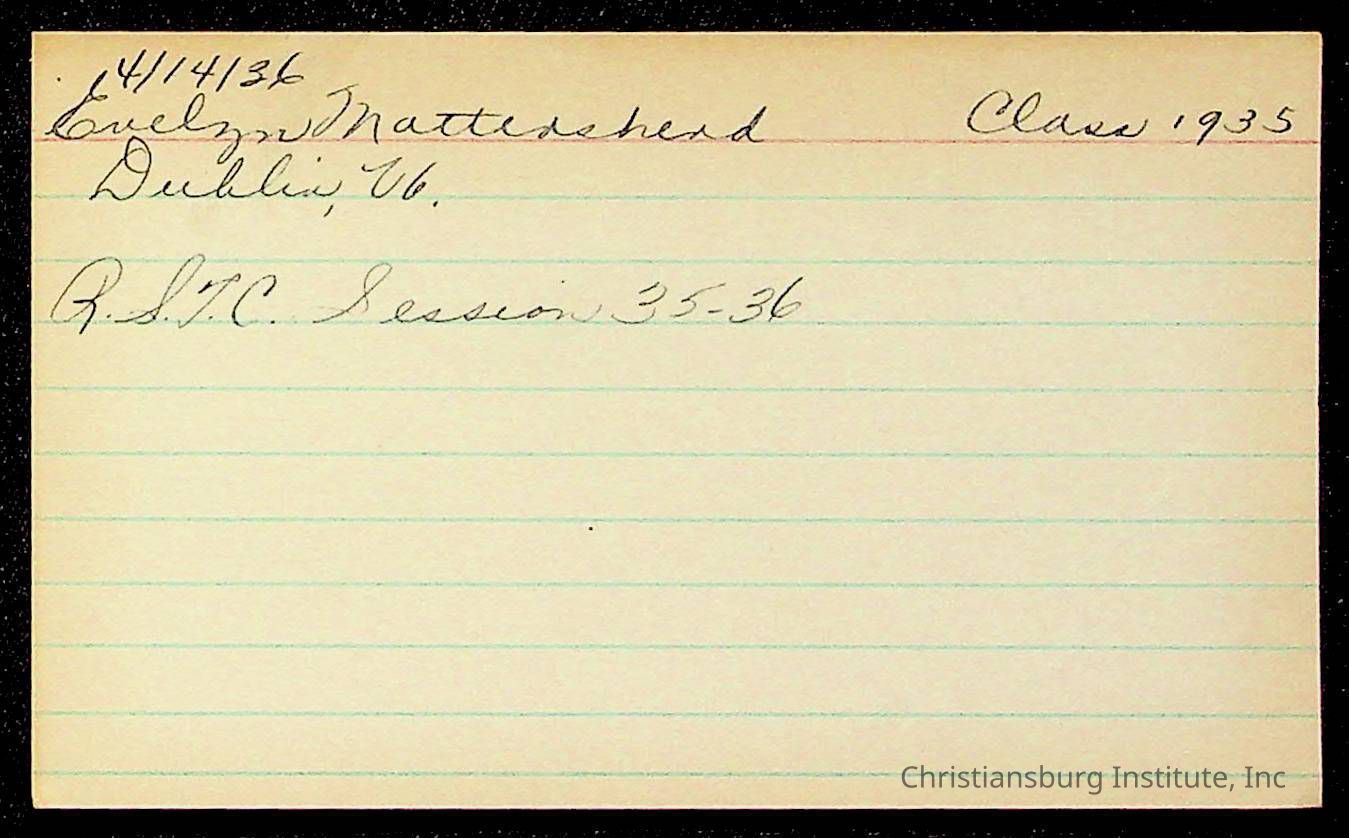 4/14/36
Evelyn Mattershead Class 1935
Dublin, Va.
R.S.T.C. Session 35-36
Christiansburg Institute, Inc